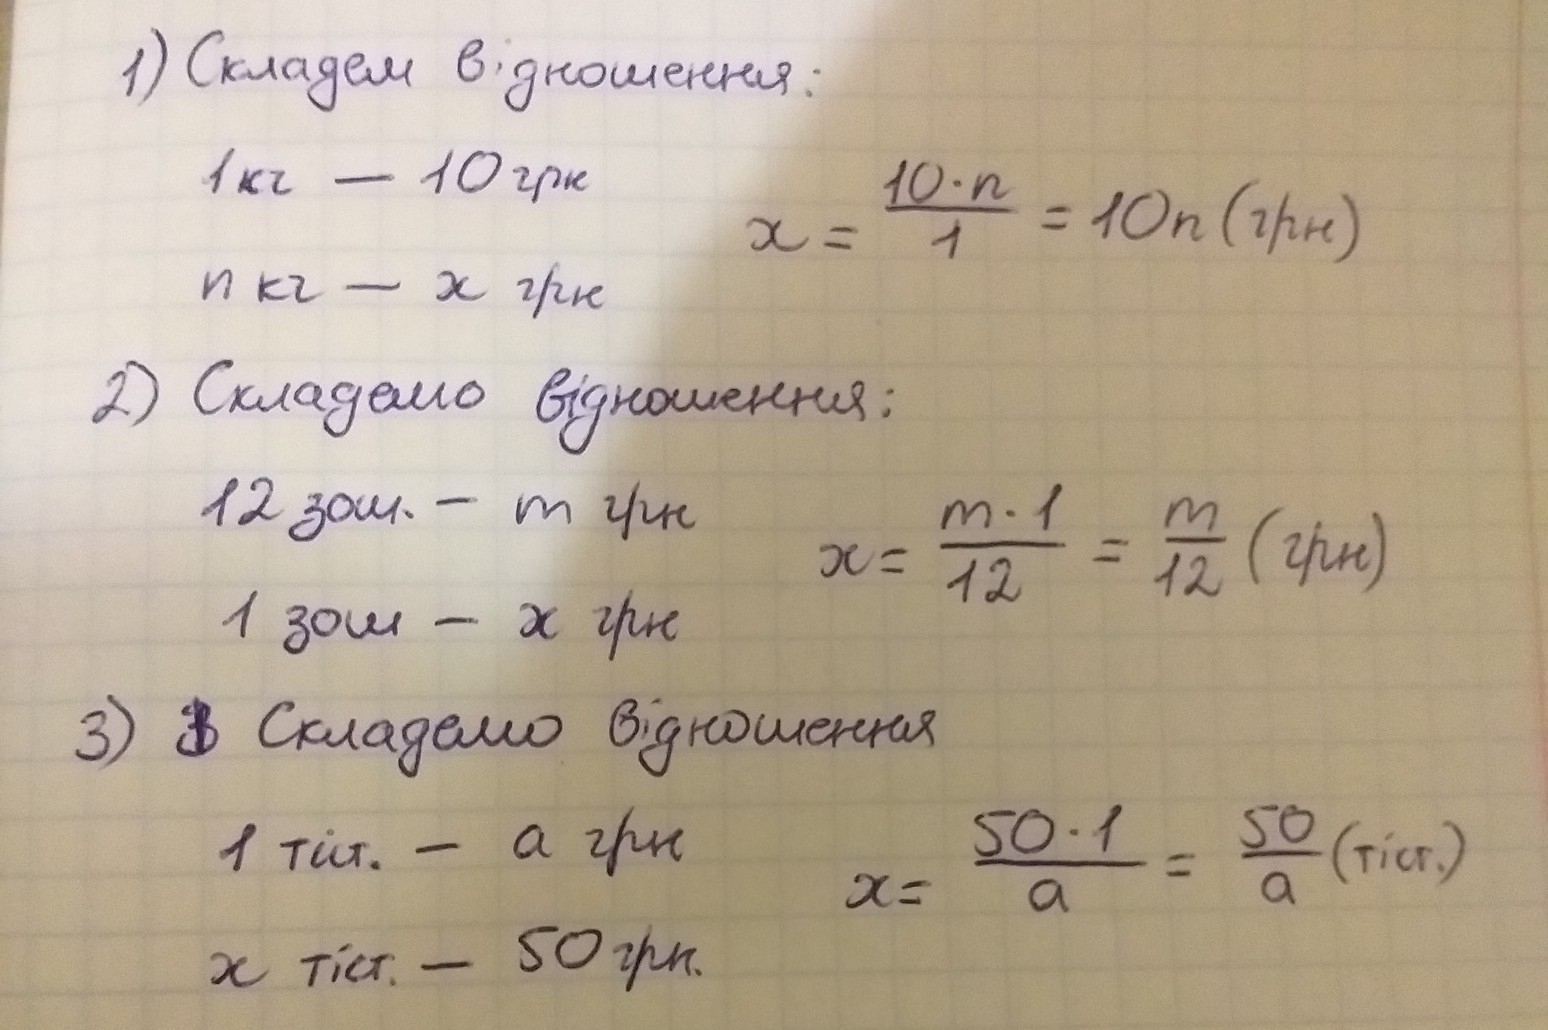 1) Складем відношення:
1кг — 10 грн
n кг — x грн
x = 10·n / 1 = 10n (грн)
2) Складемо відношення:
12 зош. — m грн
1 зош — x грн
x = m·1 / 12 = m / 12 (грн)
3) Складемо відношення
1 тіст. — a грн
x тіст. — 50 грн.
x = 50·1 / a = 50 / a (тіст.)